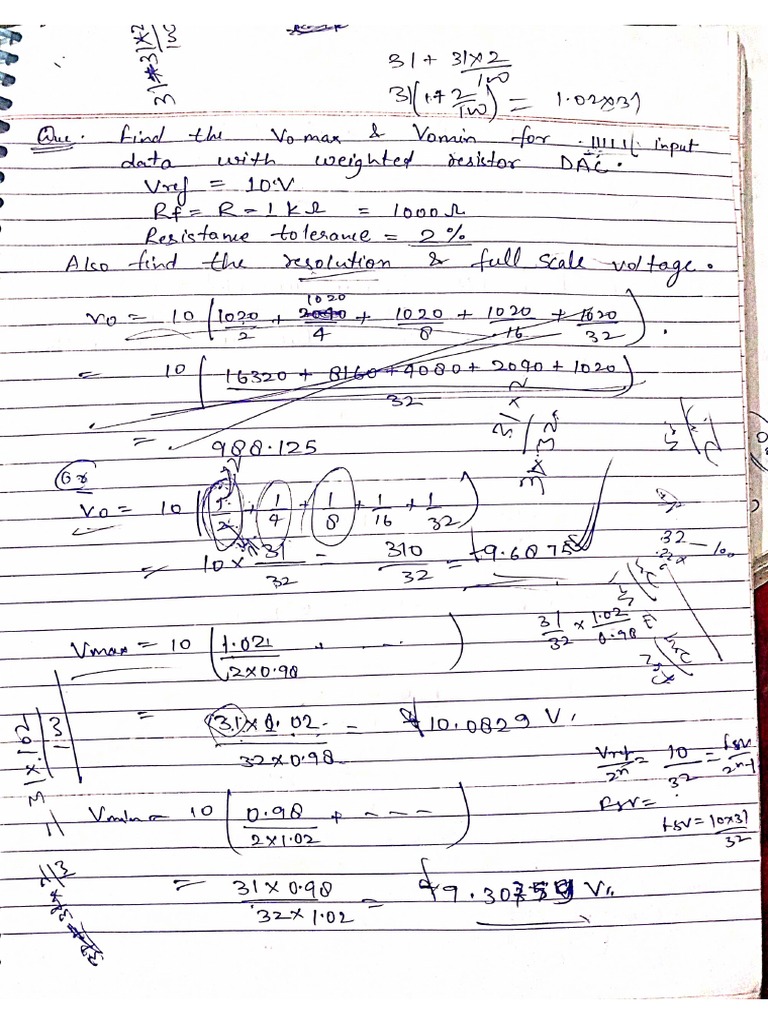 31 + 31×2/100
31(1+2/100) = 1.02×31
Que. Find the Vomax & Vomin for 11111 input
data with weighted resistor DAC.
Vref = 10.V
Rf = R = 1 KΩ = 1000 Ω
Resistance tolerance = 2%
Also find the resolution & full scale voltage.
Vo = 10 (1020/2 + 1020/4 + 1020/8 + 1020/16 + 1020/32).
= 10 (16320 + 8160 + 4080 + 2040 + 1020 / 32)
= 988.125
Vo = 10 (1/2 + 1/4 + 1/8 + 1/16 + 1/32)
= 10 × 31/32 = 310/32 = 9.6875
31/32 × 1.02/0.98
Vmax = 10 (1.02/2×0.98 + - - -)
= 31×1.02/32×0.98 = 10.0829 V.
Vref/2ⁿ = 10/32 = fsv/2ⁿ-1
fsv =
fsv = 10×31/32
Vmin = 10 (0.98/2×1.02 + - - -)
= 31×0.98/32×1.02 =